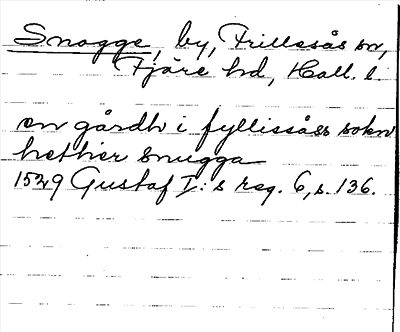 Snogge, by, Frillesås sn,
Fjäre hd, Hall. l.
en gårdh i fyllissåss sokn
hether Snugga
1529 Gustaf I:s reg. 6, s. 136.